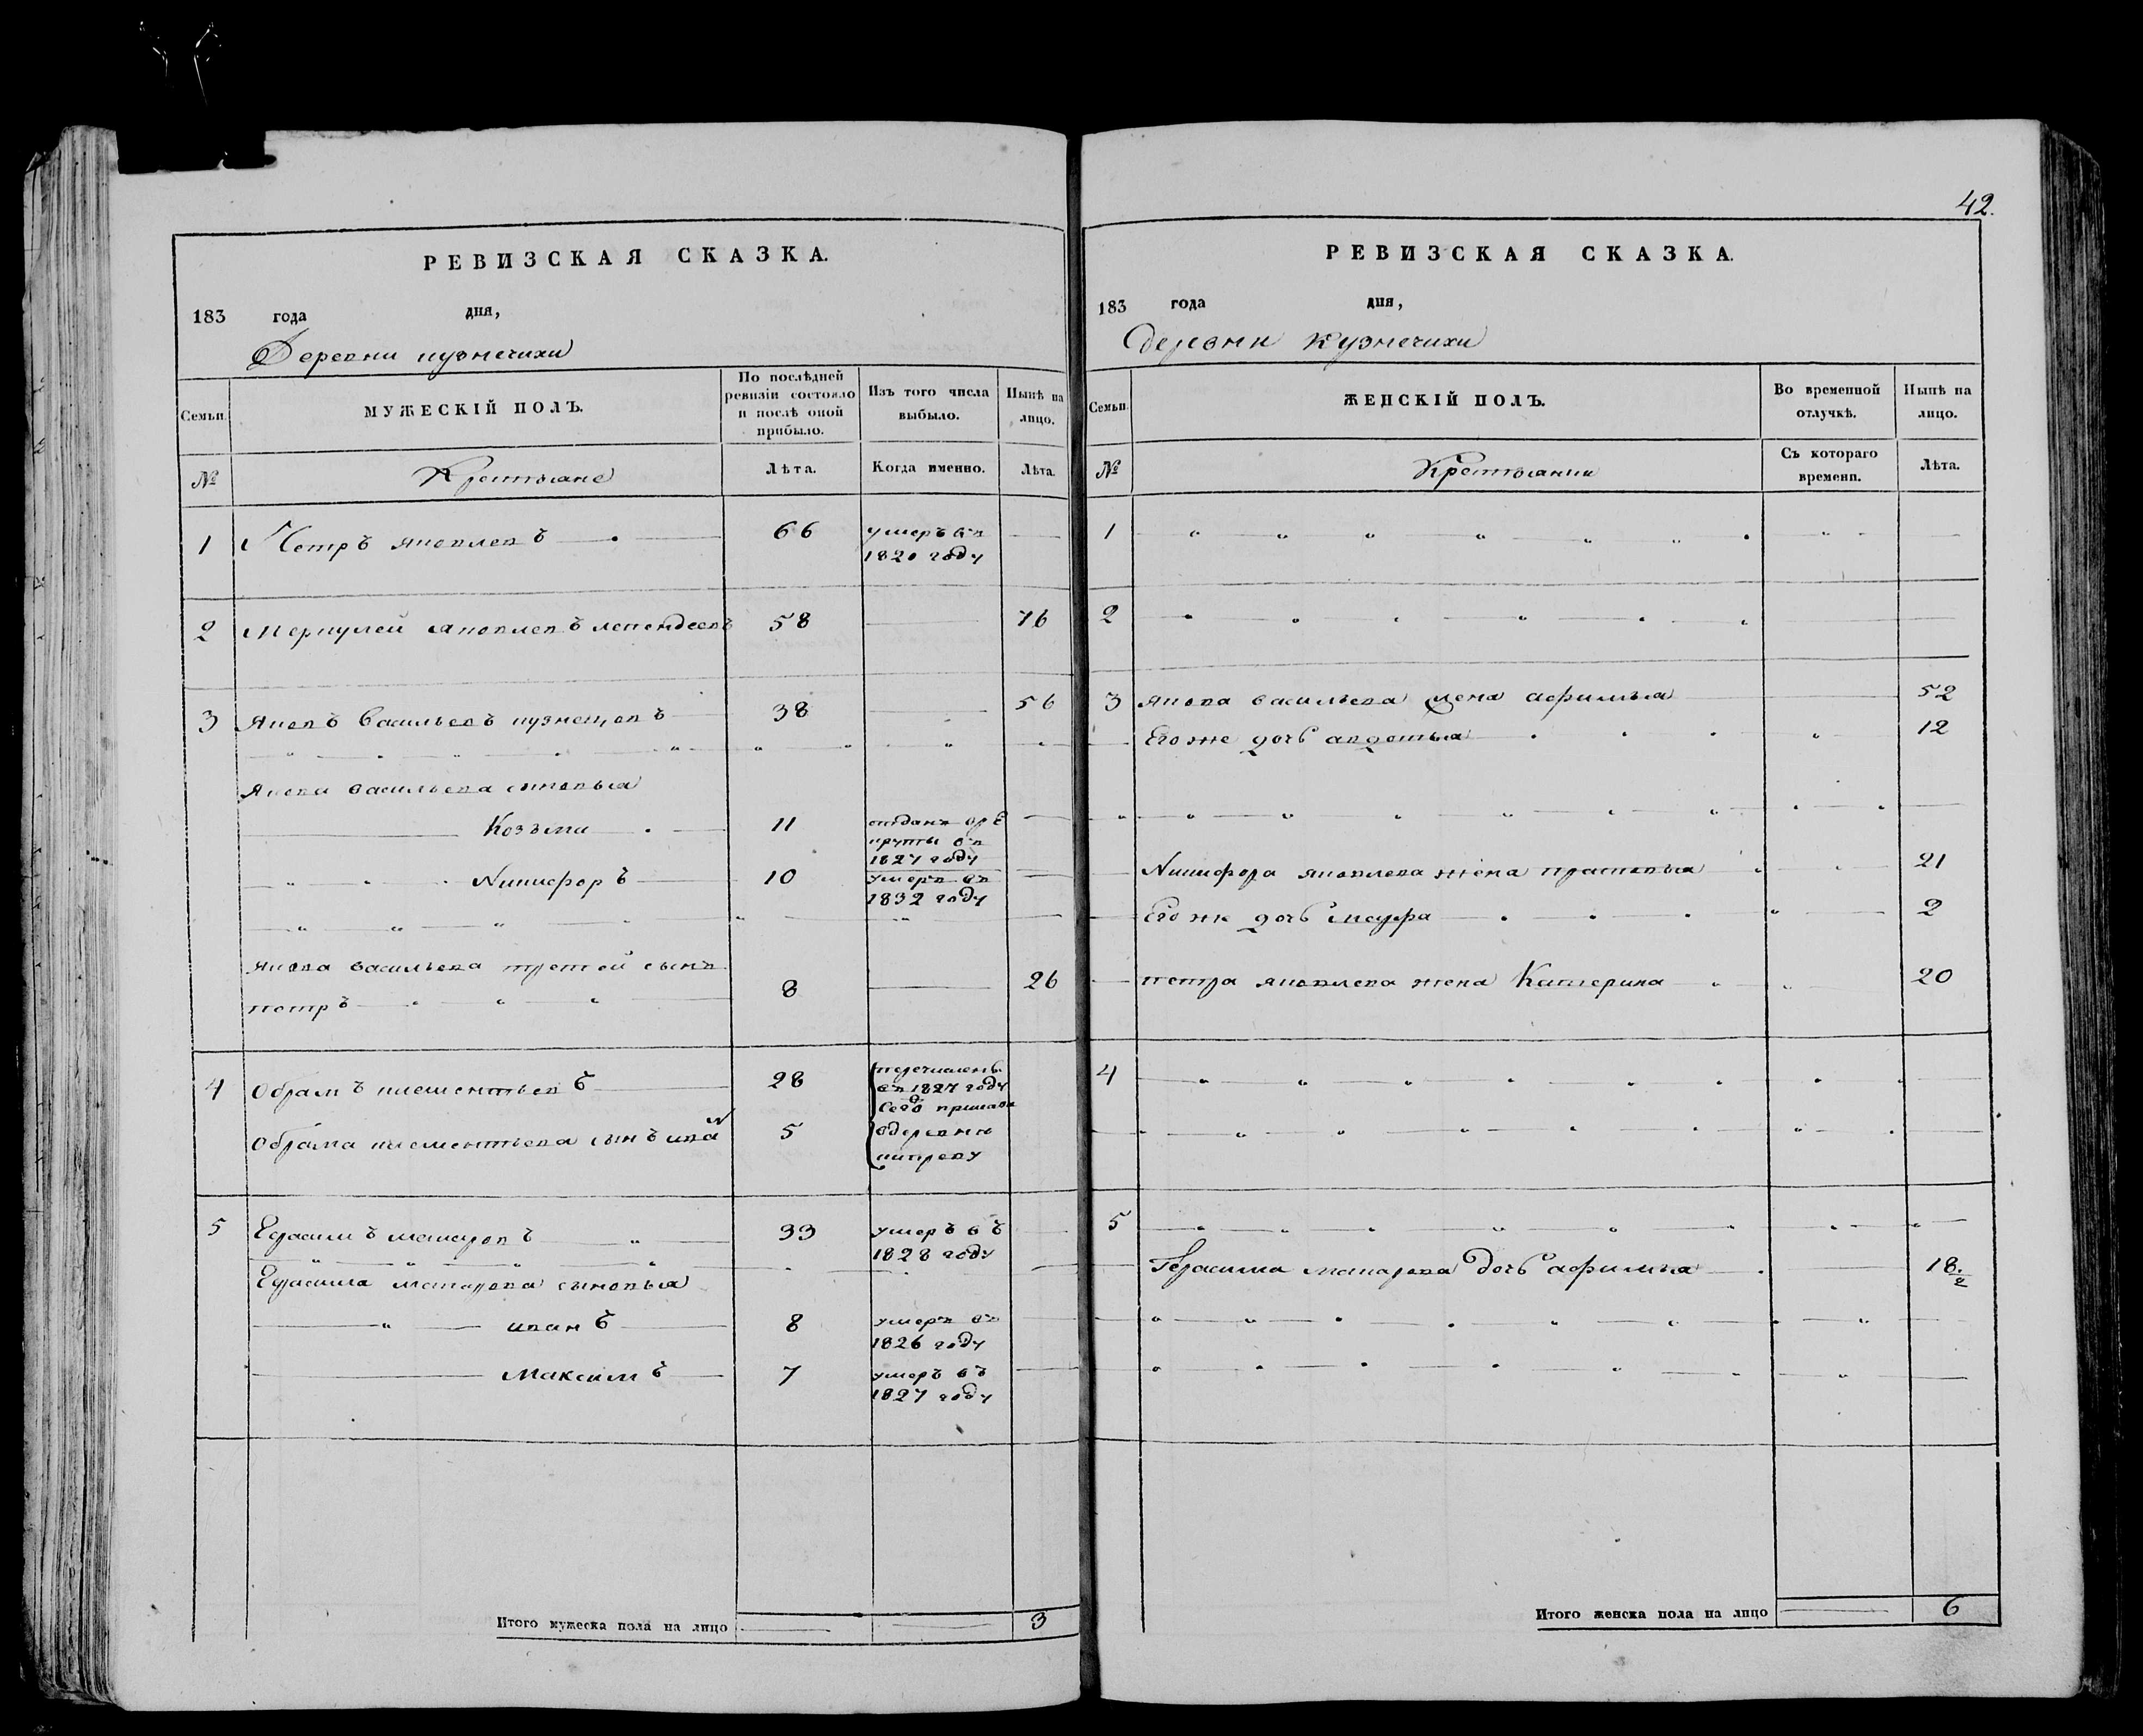 42.
РЕВИЗСКАЯ СКАЗКА.
183 года дня,
Деревни кузнечихи
Семьи.
МУЖЕСКІЙ ПОЛЪ.
По послѣдней ревизіи состояло и послѣ оной прибыло.
Изъ того числа выбыло.
Нынѣ на лицо.
№
Крестьяне
Лѣта.
Когда именно.
Лѣта.
1 Петръ яковлевъ 66 умеръ въ
1820 году
2 Меркулей яковлевъ 58 76
3 Яковъ Васильевъ кузнецовъ 38 56
Якова васильева сыновья
Козьма 11 отданъ
1827 году
Никифоръ 10 умеръ въ
1832 году
Якова васильева третей сынъ
петръ 8 26
4 Обрамъ клементьевъ 28 перечисленъ
въ 1827 году
Обрама клементьева сынъ иванъ 5 вдеревню
5 Герасимъ макаровъ 33 умеръ въ
1828 году
Герасима макарова сыновья
иванъ 8 умеръ въ
1826 году
Максимъ 7 умеръ въ
1827 году
Итого мужеска пола на лицо 3
РЕВИЗСКАЯ СКАЗКА.
183 года дня,
Деревни Кузнечихи
Семьи.
ЖЕНСКІЙ ПОЛЪ.
Во временной отлучкѣ.
Нынѣ на лицо.
№
Крестьянки
Съ котораго времени.
Лѣта.
1
2
3 якова васильева жена афимья 52
Его же дочь авдотья 12
Никифора яковлева жена прасковья 21
Его же дочь мавра 2
петра яковлева жена Катерина 20
4
5
Герасима макарова дочь афимья 18.
Итого женска пола на лицо 6